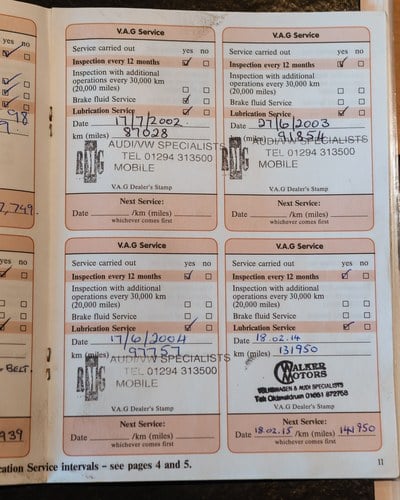 V.A.G Service
Service carried out yes no
Inspection every 12 months
Inspection with additional
operations every 30,000 km
(20,000 miles)
Brake fluid Service
Lubrication Service
Date 17/7/2002.
km (miles) 87028
AUDI/VW SPECIALISTS
TEL 01294 313500
MOBILE
V.A.G Dealer's Stamp
Next Service:
Date /km (miles)
whichever comes first
V.A.G Service
Service carried out yes no
Inspection every 12 months
Inspection with additional
operations every 30,000 km
(20,000 miles)
Brake fluid Service
Lubrication Service
Date 27/6/2003
km (miles) 91854
AUDI/VW SPECIALISTS
TEL 01294 313500
MOBILE
V.A.G Dealer's Stamp
Next Service:
Date /km (miles)
whichever comes first
V.A.G Service
Service carried out yes no
Inspection every 12 months
Inspection with additional
operations every 30,000 km
(20,000 miles)
Brake fluid Service
Lubrication Service
Date 17/6/2004
km (miles) 97757
AUDI/VW SPECIALISTS
TEL 01294 313500
MOBILE
V.A.G Dealer's Stamp
Next Service:
Date /km (miles)
whichever comes first
V.A.G Service
Service carried out yes no
Inspection every 12 months
Inspection with additional
operations every 30,000 km
(20,000 miles)
Brake fluid Service
Lubrication Service
Date 18.02.14
km (miles) 131950
WALKER
MOTORS
VOLKSWAGEN & AUDI SPECIALISTS
Tel: Oldmeldrum 01651 872768
V.A.G Dealer's Stamp
Next Service:
Date 18.02.15 /km (miles) 141950
whichever comes first
11
cation Service intervals – see pages 4 and 5.
yes no
98
,749.
yes no
BELT.
939